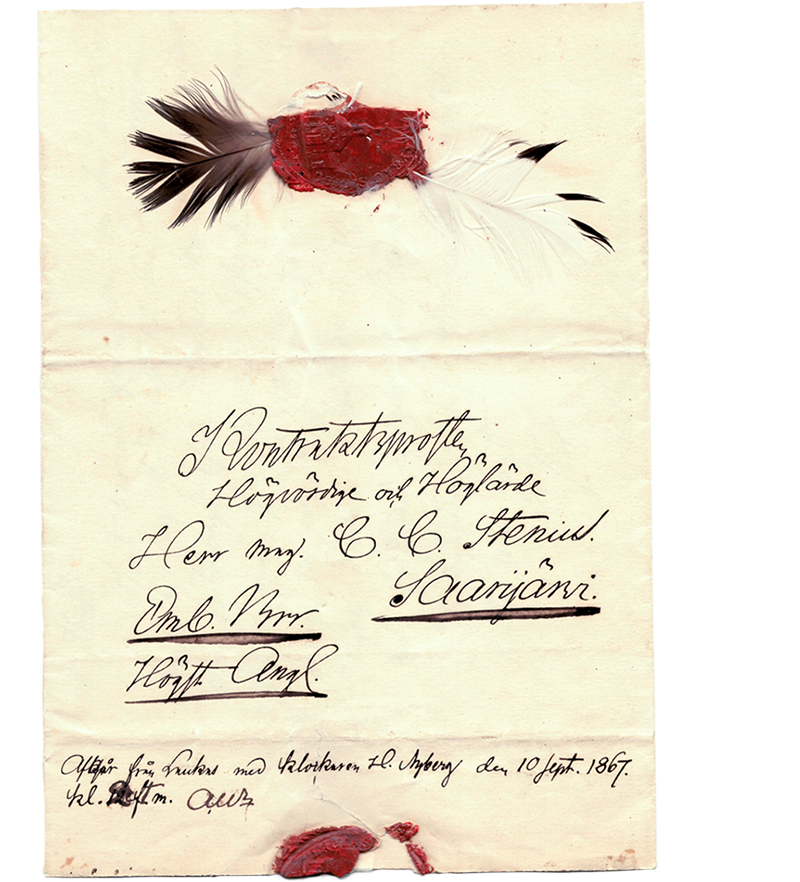 Kontraktsprosten
Högvördige och Höglärde
Herr Mag. C. C. Stenius.
Saarijärvi.
Emb. Brr.
Högst Angl.
Afgår från Leukas med klockaren H. Nyberg den 10 Sept. 1867.
kl. m.